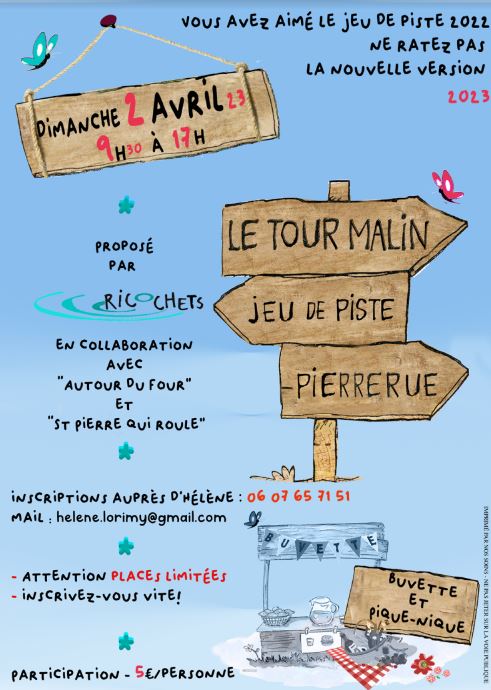 VOUS AVEZ AIMÉ LE JEU DE PISTE 2022
NE RATEZ PAS
LA NOUVELLE VERSION
2023
DIMANCHE 2 AVRIL 23
9H30 À 17H
LE TOUR MALIN
JEU DE PISTE
-PIERRERUE
PROPOSÉ
PAR
RICOCHETS
EN COLLABORATION
AVEC
"AUTOUR DU FOUR"
ET
"ST PIERRE QUI ROULE"
INSCRIPTIONS AUPRÈS D'HÉLÈNE : 06 07 65 71 51
MAIL : helene.lorimy@gmail.com
- ATTENTION PLACES LIMITÉES
- INSCRIVEZ-VOUS VITE!
PARTICIPATION - 5€/PERSONNE
BUVETTE
BUVETTE
ET
PIQUE-NIQUE
IMPRIMÉ PAR NOS SOINS - NE PAS JETER SUR LA VOIE PUBLIQUE